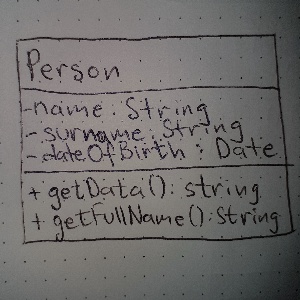 Person
-name: String
-surname: String
-dateOfBirth: Date
+ getData(): string
+ getFullName(): String